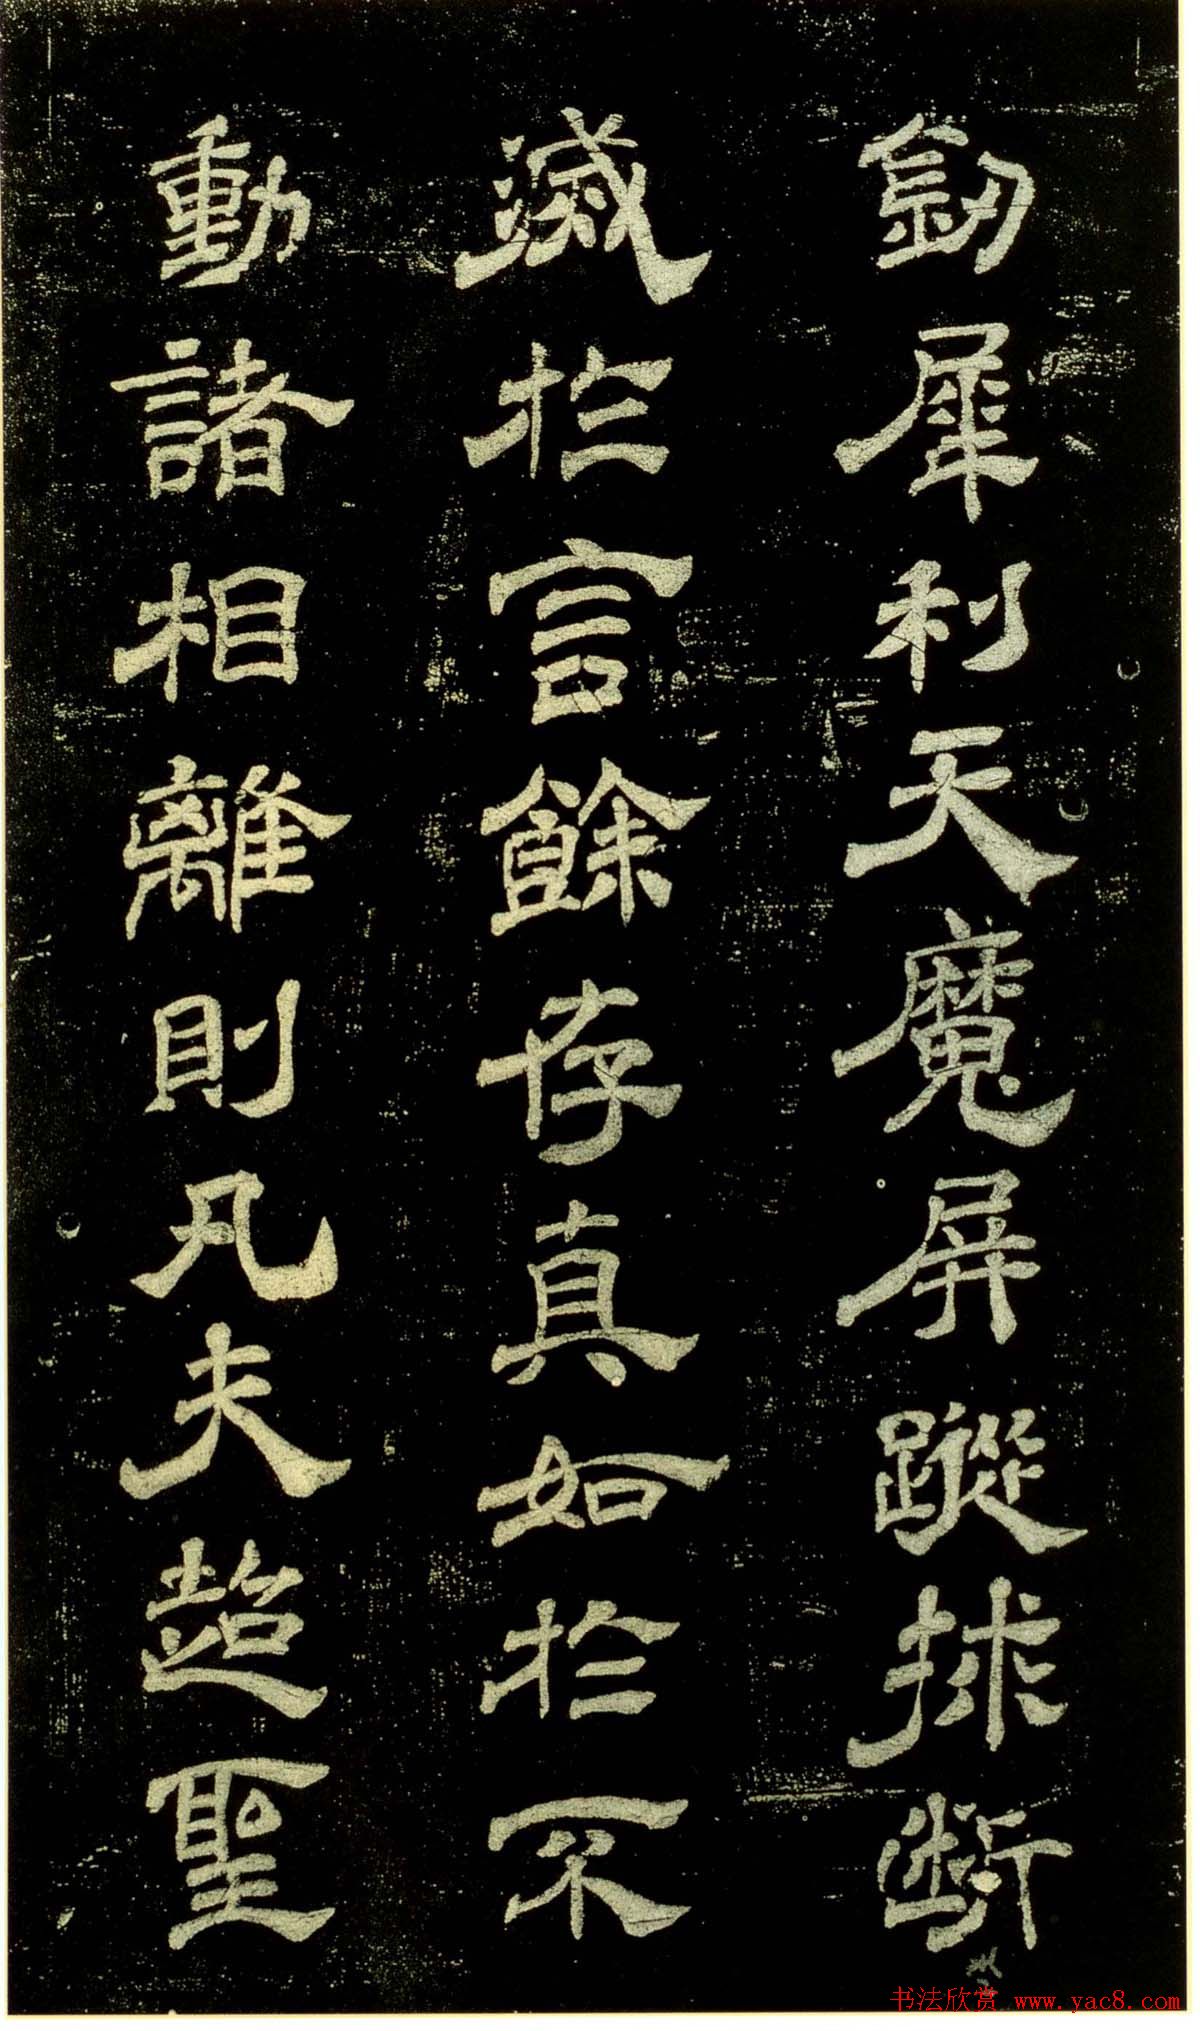 劔犀利天魔屏蹤排斷
滅於言餘存真如於不
動諸相離則凡夫超聖
书法欣赏 www.yac8.com